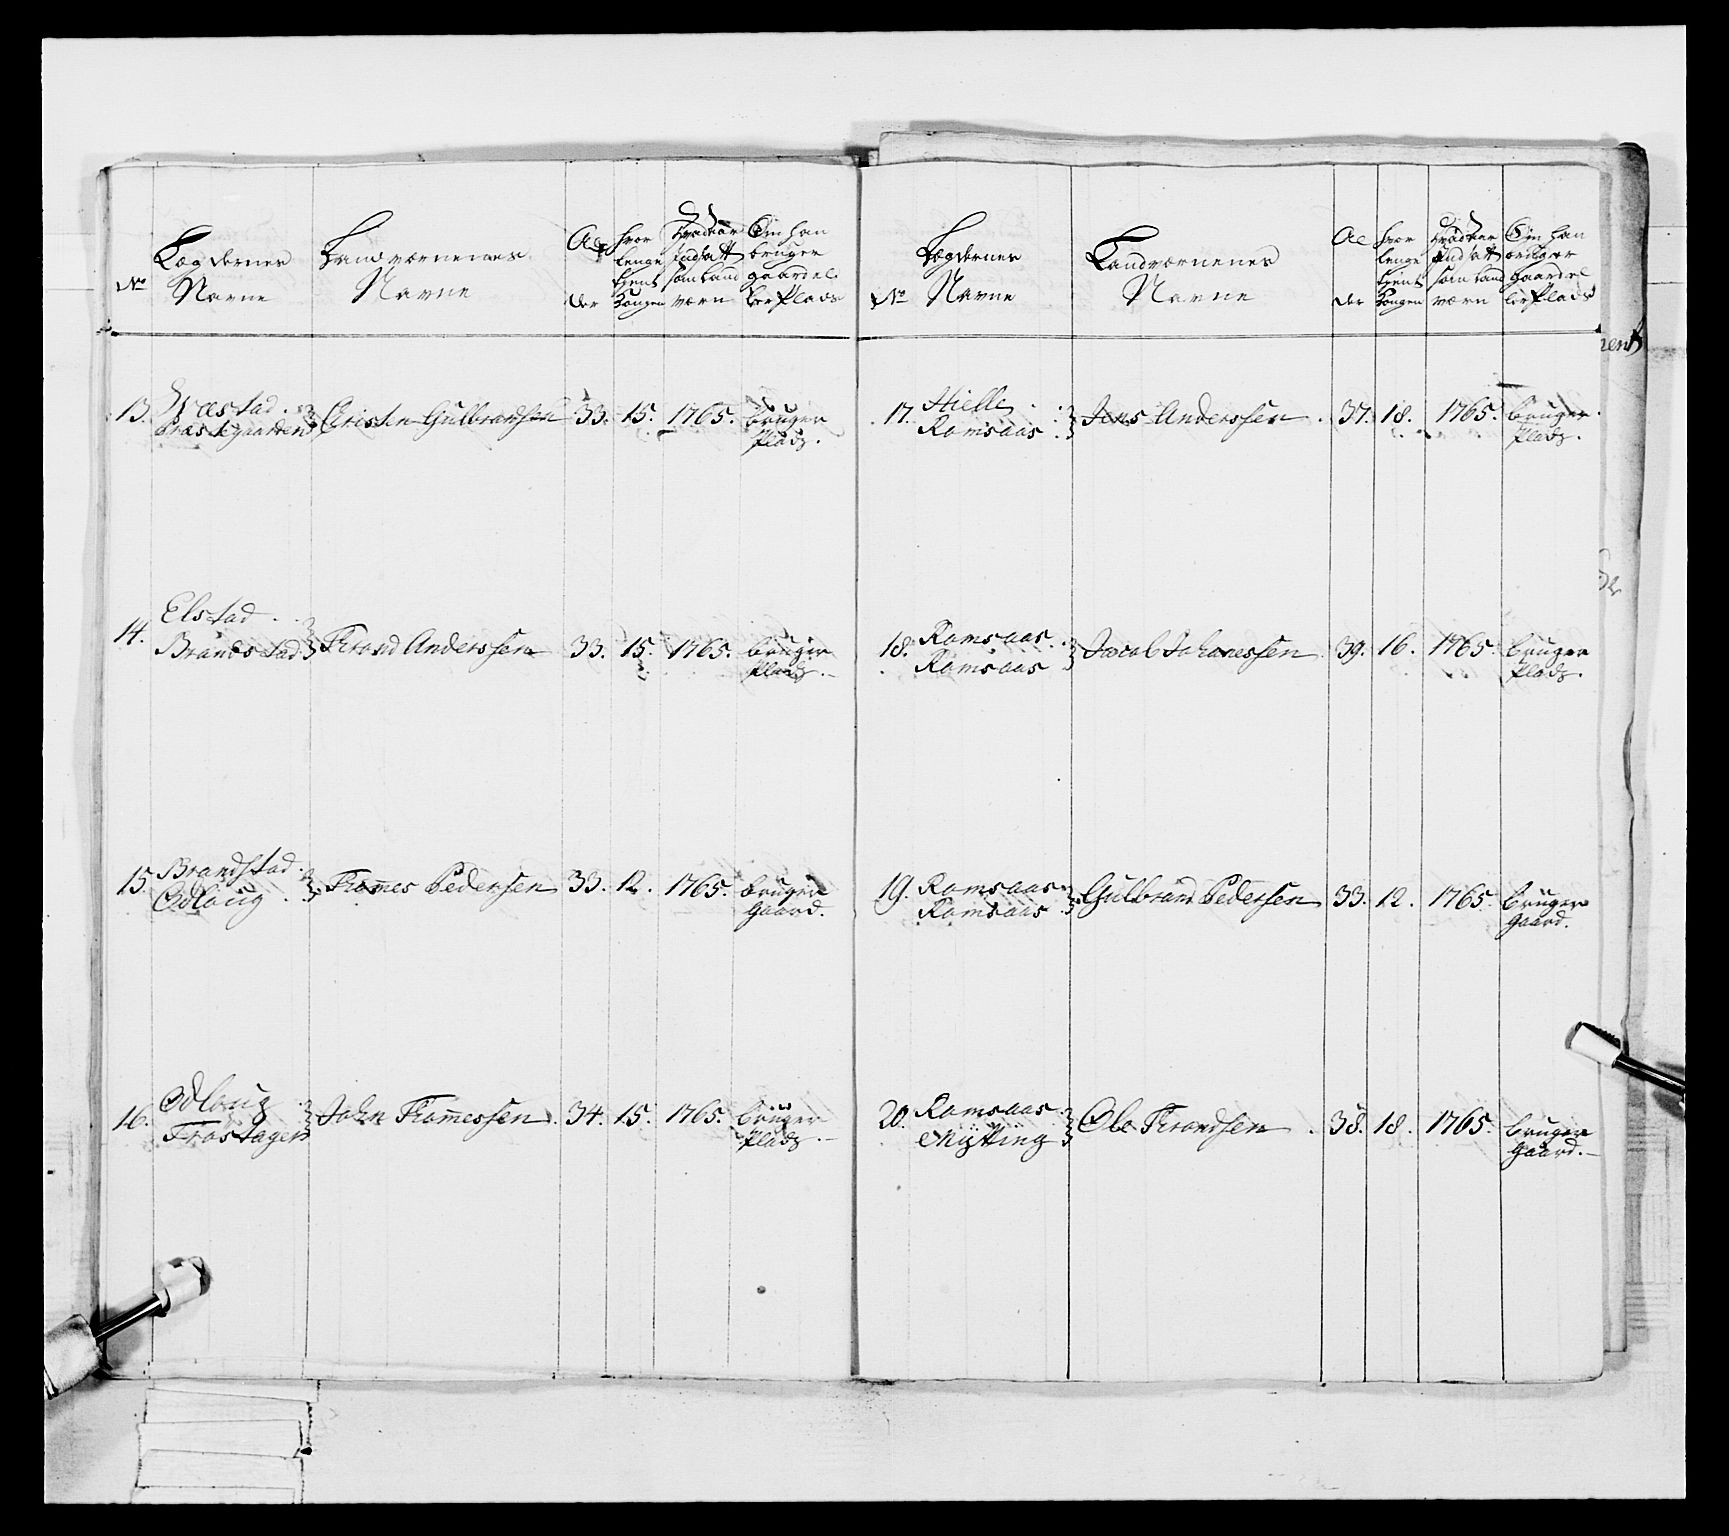 No
Lægdernes
Navne
Landværnernes
Navne
Al
der
hvor
lenge
tient
Kongen
hvad aar
indsatt
som land
værn
Om han
bruger
gaard el
ler Plads
13.
stad
Præstegaarden
Cristen Gulbrandsen
33.
15.
1765.
bruger
Pladz.
14.
Elstad
Brandstad
Trond Anderssen
33.
15.
1765.
bruger
Pladz.
15.
Brandstad
Odloug
Tromes Pedersen
33.
12.
1765.
bruger
Gaard.
16.
Odloug
Frostagen
John Tromessen.
34.
15.
1765.
bruger
Pladz.
No
Lægdernes
Navne
Landværnenes
Navne
Al
der
hvor
lenge
tient
Kongen
hvad aar
indsatt
som land
værn
Om han
bruger
Gaard el
ler Plads
17.
Hielle
Romsaas
Jens Anderssen.
37.
18.
1765.
bruger
Pladz.
18.
Romsaas
Romsaas
Jacob Johanessen
39.
16.
1765.
bruger
Pladz.
19.
Romsaas
Romsaas
Gulbrand Pedersen
33.
12.
1765.
bruger
Gaard.
20.
Romsaas
Mÿtting
Ole Trondsen.
38.
18.
1765.
bruger
Gaard.